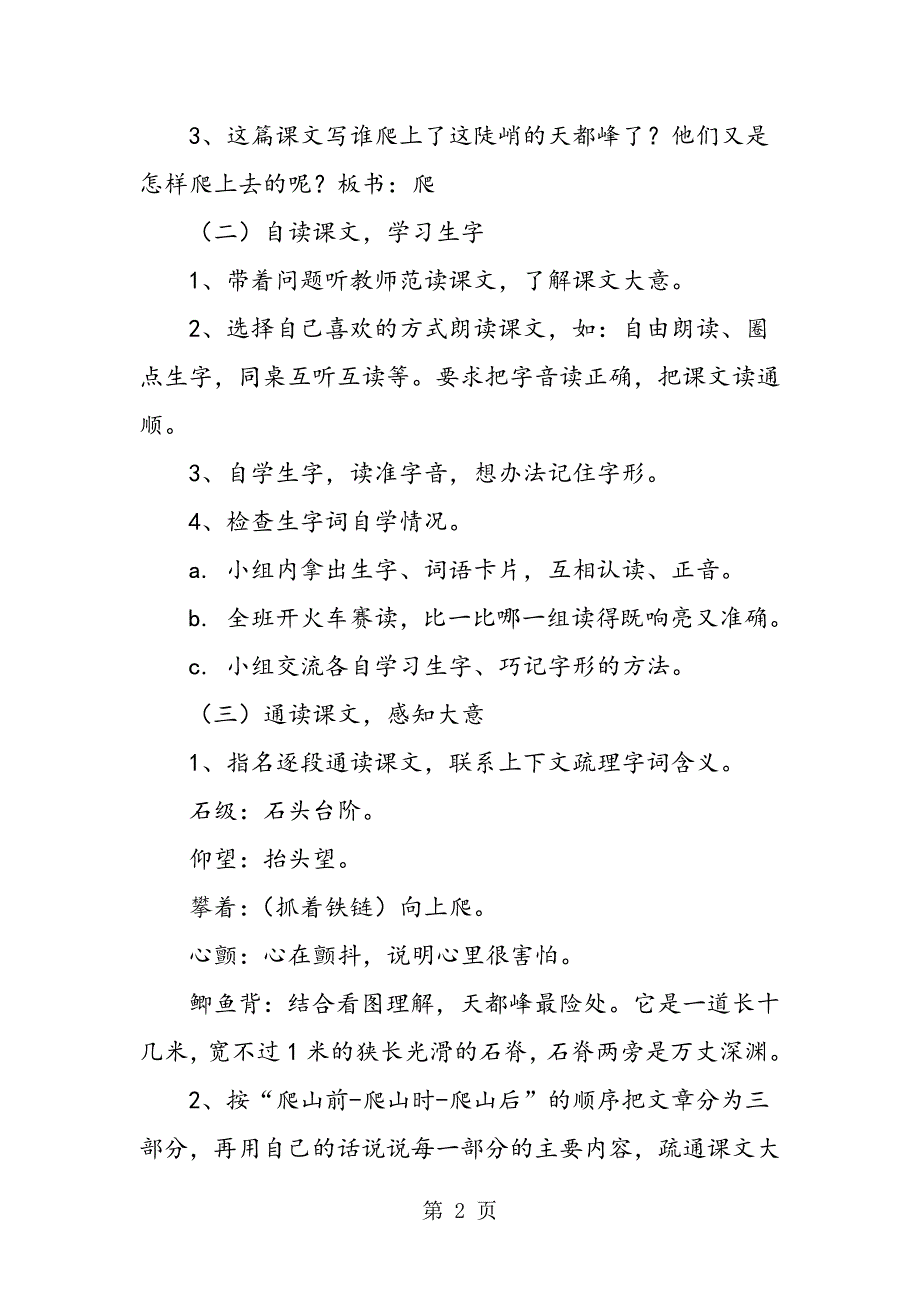 3、这篇课文写谁爬上了这陡峭的天都峰了？他们又是
怎样爬上去的呢？板书：爬
（二）自读课文，学习生字
1、带着问题听教师范读课文，了解课文大意。
2、选择自己喜欢的方式朗读课文，如：自由朗读、圈
点生字，同桌互听互读等。要求把字音读正确，把课文读通
顺。
3、自学生字，读准字音，想办法记住字形。
4、检查生字词自学情况。
a. 小组内拿出生字、词语卡片，互相认读、正音。
b. 全班开火车赛读，比一比哪一组读得既响亮又准确。
c. 小组交流各自学习生字、巧记字形的方法。
（三）通读课文，感知大意
1、指名逐段通读课文，联系上下文疏理字词含义。
石级：石头台阶。
仰望：抬头望。
攀着：（抓着铁链）向上爬。
心颤：心在颤抖，说明心里很害怕。
鲫鱼背：结合看图理解，天都峰最险处。它是一道长十
几米，宽不过1米的狭长光滑的石脊，石脊两旁是万丈深渊。
2、按“爬山前-爬山时-爬山后”的顺序把文章分为三
部分，再用自己的话说说每一部分的主要内容，疏通课文大
第 2 页